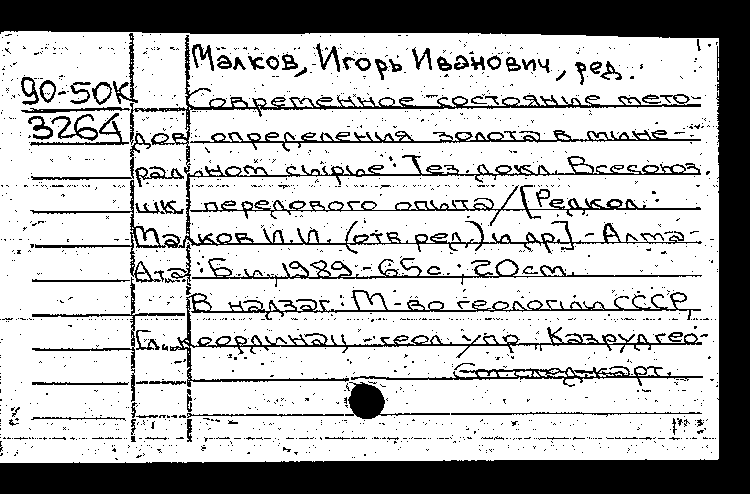 Малков, Игорь Иванович, ред.
90-50К
3264
Современное состояние мето-
дов определения золота в мине-
ральном сырье: Тез. докл. Всесоюз.
шк. передового опыта / [Редкол.:
Малков И.И. (отв. ред.) и др.]. - Алма-
Ата: Б.и., 1989. - 65 с.; 20 см.
В надзаг.: М-во геологии СССР,
Гл. координац.-геол. упр., Казрудгео-
См. след. карт.